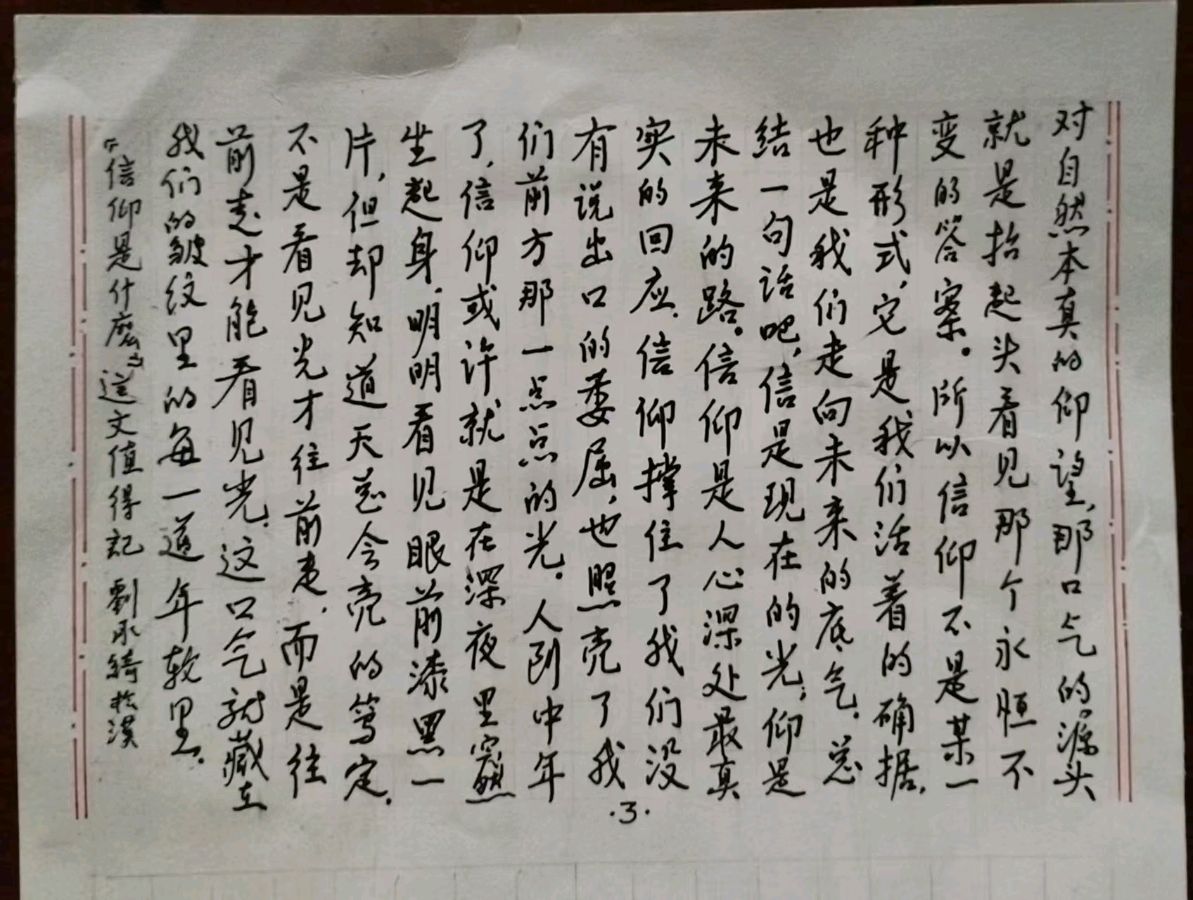 对自然本真的仰望，那口气的源头
就是抬起头看见那个永恒不
变的答案。所以信仰不是某一
种形式，它是我们活着的确据，
也是我们走向未来的底气。总
结一句话吧，信是现在的光，仰是
未来的路。信仰是人心深处最真
实的回应，信仰撑住了我们没
有说出口的委屈，也照亮了我
们前方那一点点的光。人到中年
了，信仰或许就是在深夜里
坐起身，明明看见眼前漆黑一
片，但却知道天总会亮的笃定，
不是看见光才往前走，而是往
前走才能看见光，这口气就藏在
我们的皱纹里的每一道年轮里。
“信仰是什么”这文值得记 劉承绮於漢
·3·